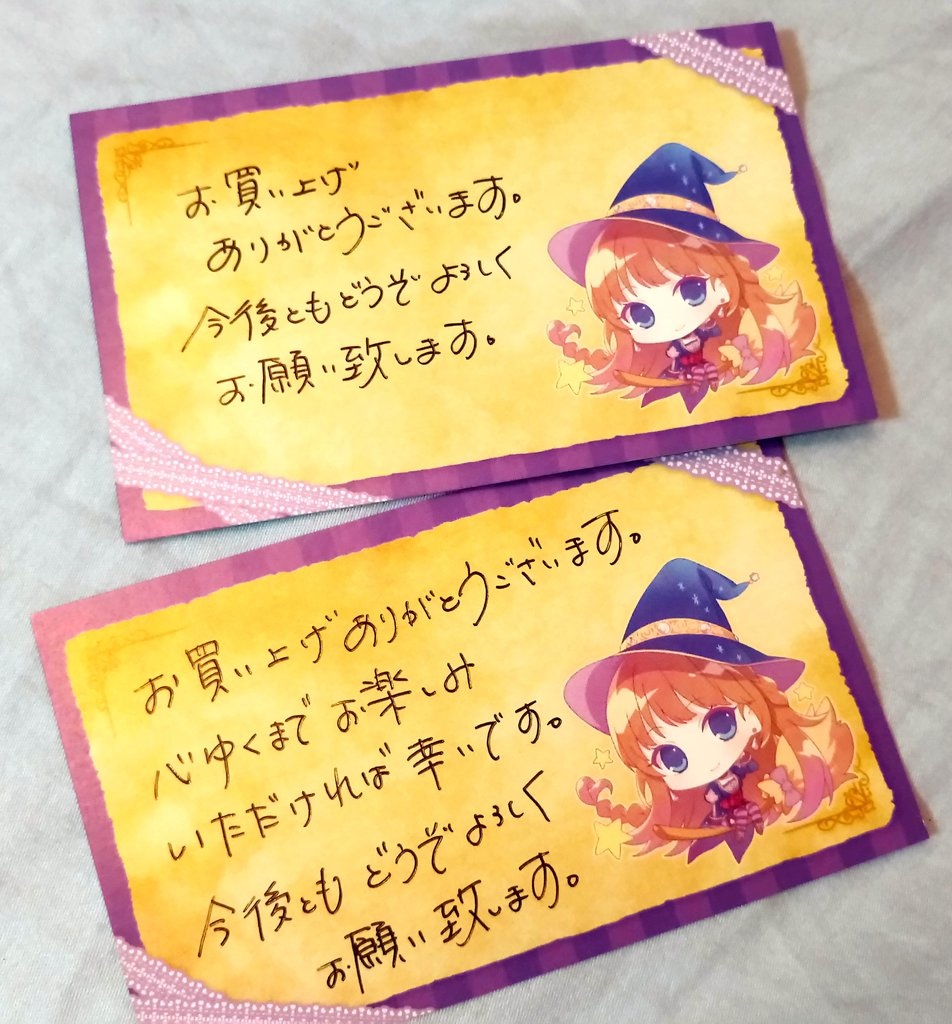 お買い上げ
ありがとうございます。
今後ともどうぞよろしく
お願い致します。
お買い上げありがとうございます。
心ゆくまでお楽しみ
いただければ幸いです。
今後ともどうぞよろしく
お願い致します。